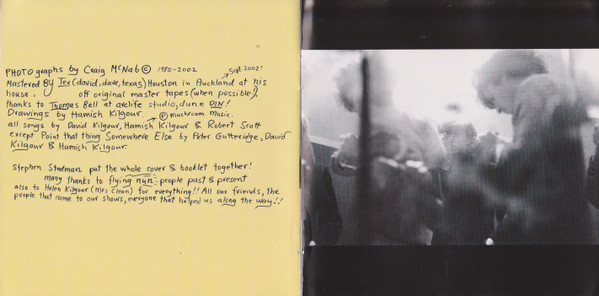 Sept 2002!
PHOTOgraphs by Craig McNab © 1980-2002
Mastered By Tex (david, dave, texas) Houston in Auckland at his
house. off original master tapes (when possible!).
thanks to Thomas Bell at arclife studio, dune DIN!
Drawings by Hamish Kilgour. © mushroom music.
all songs by David Kilgour, Hamish Kilgour & Robert Scott
except Point that thing Somewhere Else by Peter Gutteridge, David
Kilgour & Hamish Kilgour.
Stephen Stedman put the whole cover & booklet together!
many thanks to flying nun: people past & present
also to Helen Kilgour (Mrs Clean) for everything!! All our friends, the
people that came to our shows, everyone that helped us along the way!!